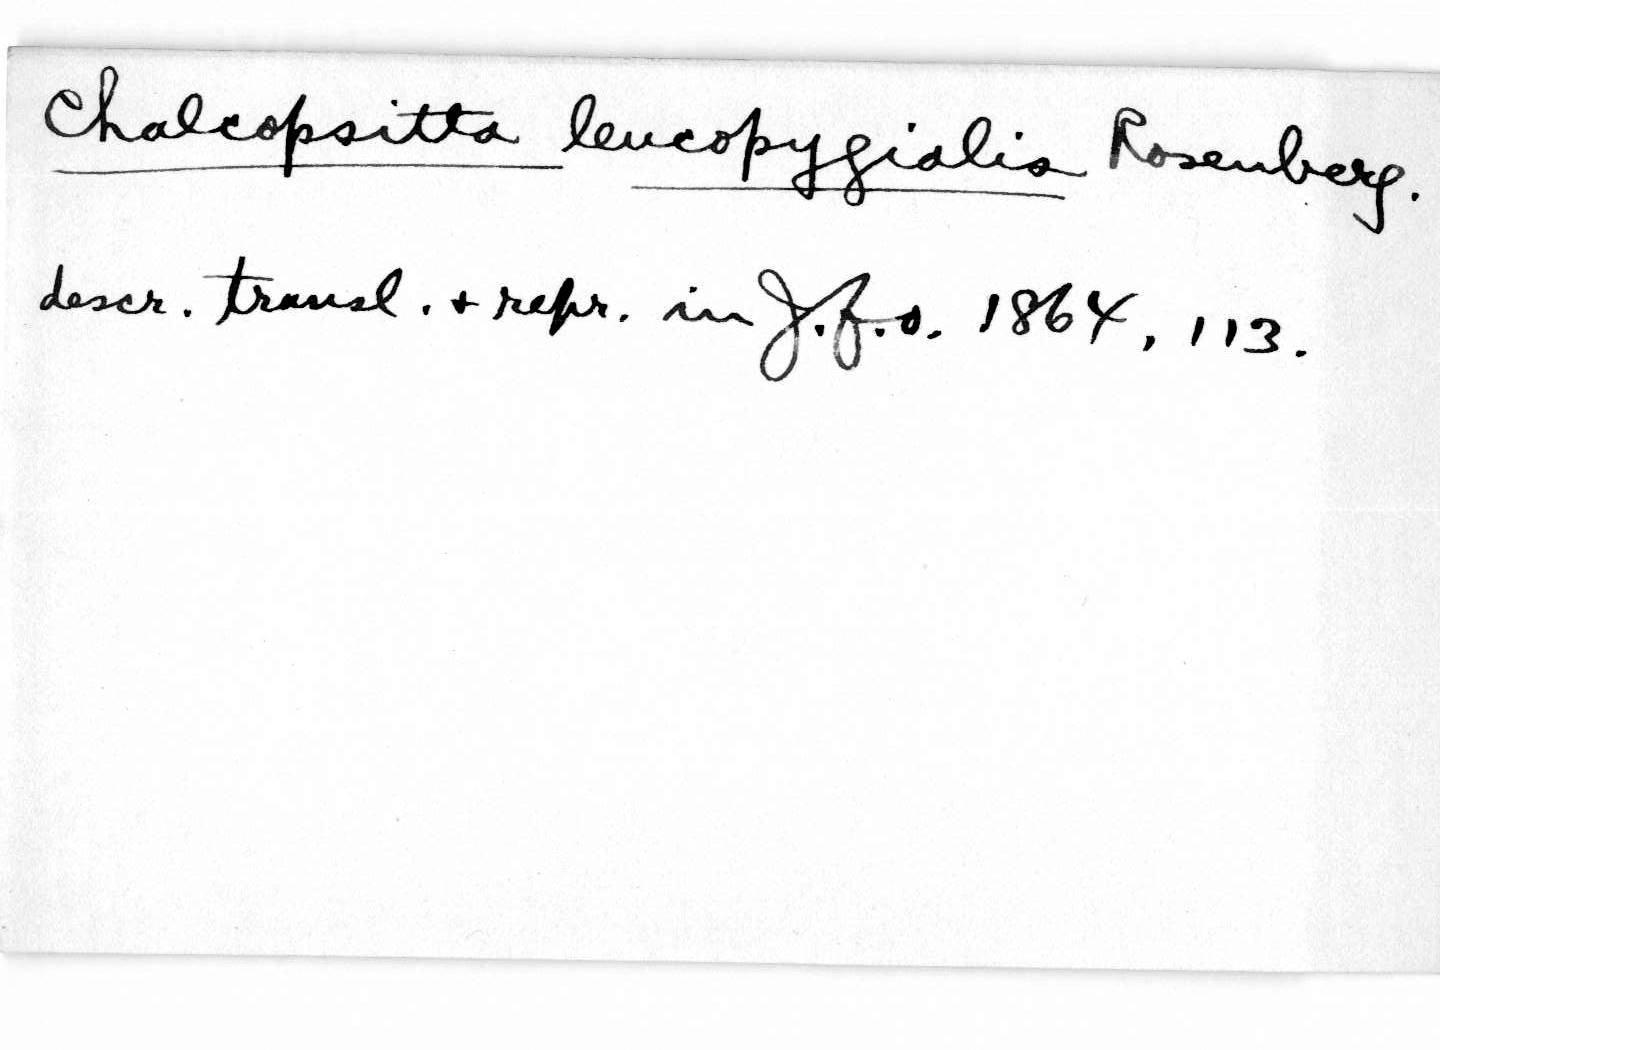 Chalcopsitta leucopygialis Rosenberg.
descr. transl. + repr. in J.f.o. 1864, 113.